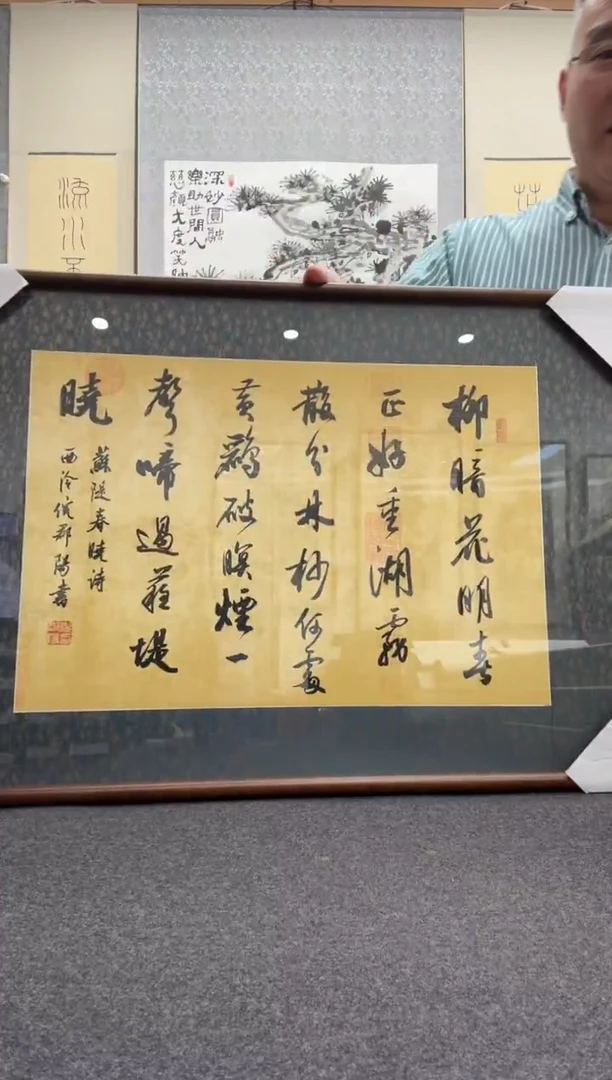 深妙圓融
樂助世間人
慈顏大度笑
流水不
柳暗花明春
正好重湖霧
散分林杪何處
黃鸝破暝煙一
聲啼過蘇堤
曉
蘇隄春曉诗
西泠 陽書